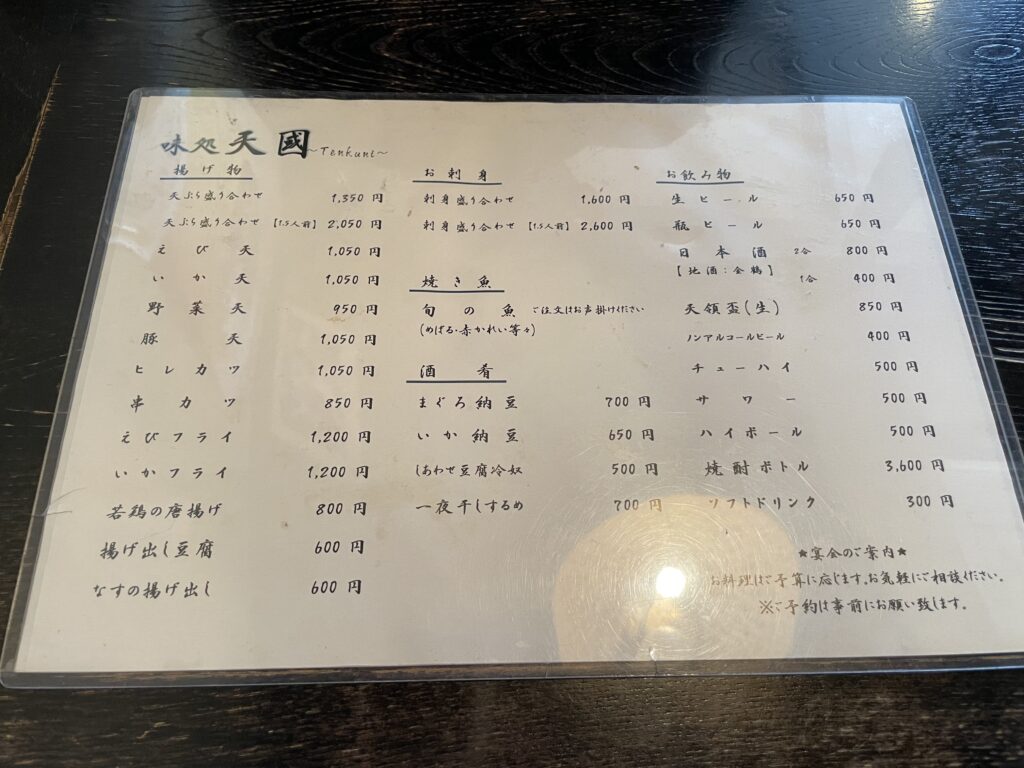 味処 天國 ~Tenkuni~
揚げ物
天ぷら盛り合わせ 1,350 円
天ぷら盛り合わせ 【1.5人前】 2,050 円
えび天 1,050 円
いか天 1,050 円
野菜天 950 円
豚天 1,050 円
ヒレカツ 1,050 円
串カツ 850 円
えびフライ 1,200 円
いかフライ 1,200 円
若鶏の唐揚げ 800 円
揚げ出し豆腐 600 円
なすの揚げ出し 600 円
お刺身
刺身盛り合わせ 1,600 円
刺身盛り合わせ 【1.5人前】 2,600 円
焼き魚
旬の魚 ご注文はお声掛けください
(めばる・赤かれい等々)
酒肴
まぐろ納豆 700 円
いか納豆 650 円
しあわせ豆腐冷奴 500 円
一夜干しするめ 700 円
お飲み物
生ビール 650 円
瓶ビール 650 円
日本酒 2合 800 円
【地酒:金鶴】 1合 400 円
天領盃(生) 850 円
ノンアルコールビール 400 円
チューハイ 500 円
サワー 500 円
ハイボール 500 円
焼酎ボトル 3,600 円
ソフトドリンク 300 円
★宴会のご案内★
お料理はご予算に応じます。お気軽にご相談ください。
※ご予約は事前にお願い致します。